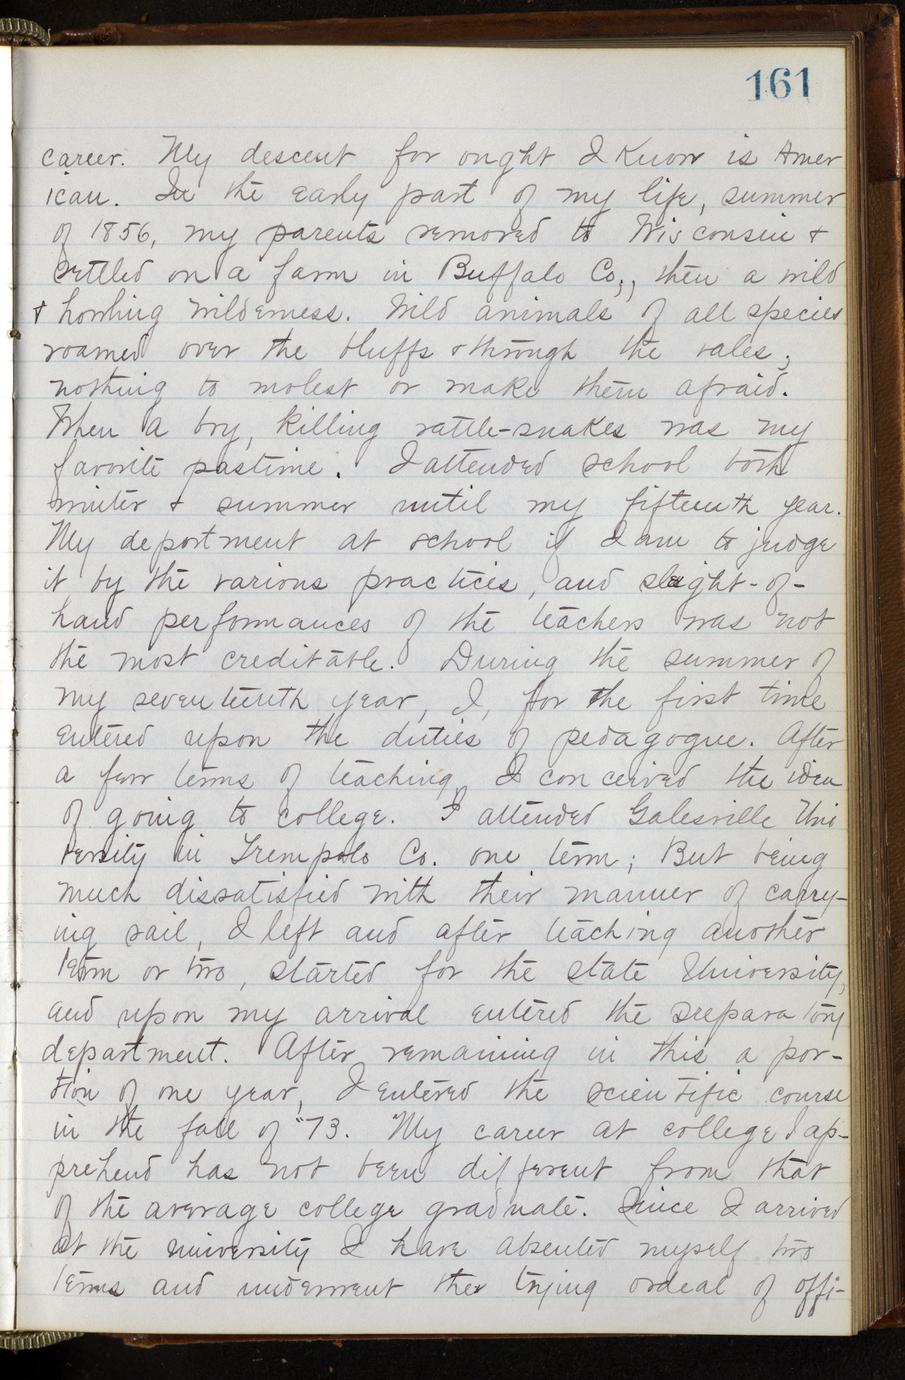 161
career. My descent for ought I know is Amer
ican. In the early part of my life, summer
of 1856, my parents removed to Wisconsin &
settled on a farm in Buffalo Co., then a wild
& howling wilderness. Wild animals of all species
roamed over the bluffs & through the vales;
nothing to molest or make them afraid.
When a boy, killing rattle-snakes was my
favorite pastime. I attended school both
winter & summer until my fifteenth year.
My deportment at school if I am to judge
it by the various practices, and sleight-of-
hand performances of the teachers was not
the most creditable. During the summer of
my seventeenth year, I, for the first time
entered upon the duties of pedagogue. After
a few terms of teaching, I conceived the idea
of going to college. I attended Galesville Uni
versity in Trempolo Co. one term; But being
much dissatisfied with their manner of carry-
ing sail, I left and after teaching another
term or two, started for the state University,
and upon my arrival entered the preparatory
department. After remaining in this a por-
tion of one year, I entered the scientific course
in the fall of '73. My career at college I ap-
prehend has not been different from that
of the average college graduate. Since I arrived
at the university I have absented myself two
terms and underwent the trying ordeal of offi-